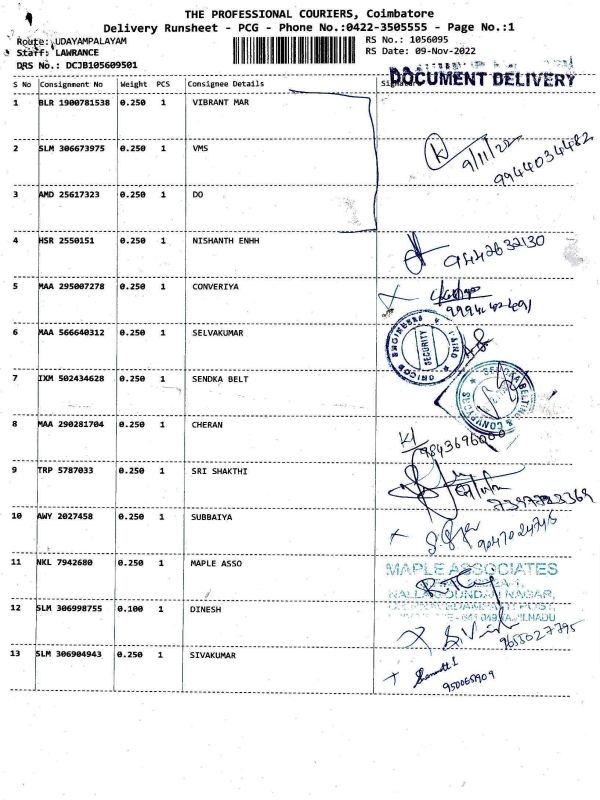 THE PROFESSIONAL COURIERS, Coimbatore
Delivery Runsheet - PCG - Phone No.:0422-3505555 - Page No.:1
Route: UDAYAMPALAYAM RS No.: 1056095
Staff: LAWRANCE RS Date: 09-Nov-2022
DRS No.: DCJB105609501
DOCUMENT DELIVERY
S No Consignment No Weight PCS Consignee Details
1 BLR 1900781538 0.250 1 VIBRANT MAR
2 SLM 306673975 0.250 1 VMS
9/11/22
9944034482
3 AMD 25617323 0.250 1 DO
4 HSR 2550151 0.250 1 NISHANTH ENHH
9442632130
5 MAA 295007278 0.250 1 CONVERIYA
6 MAA 566640312 0.250 1 SELVAKUMAR
ENGINEERS SECURITY
7 IXM 502434628 0.250 1 SENDKA BELT
8 MAA 290281704 0.250 1 CHERAN
9843696000
9 TRP 5787033 0.250 1 SRI SHAKTHI
10 AWY 2027458 0.250 1 SUBBAIYA
11 NKL 7942680 0.250 1 MAPLE ASSO
MAPLE ASSOCIATES
12 SLM 306998755 0.100 1 DINESH
9655027795
13 SLM 306904943 0.250 1 SIVAKUMAR